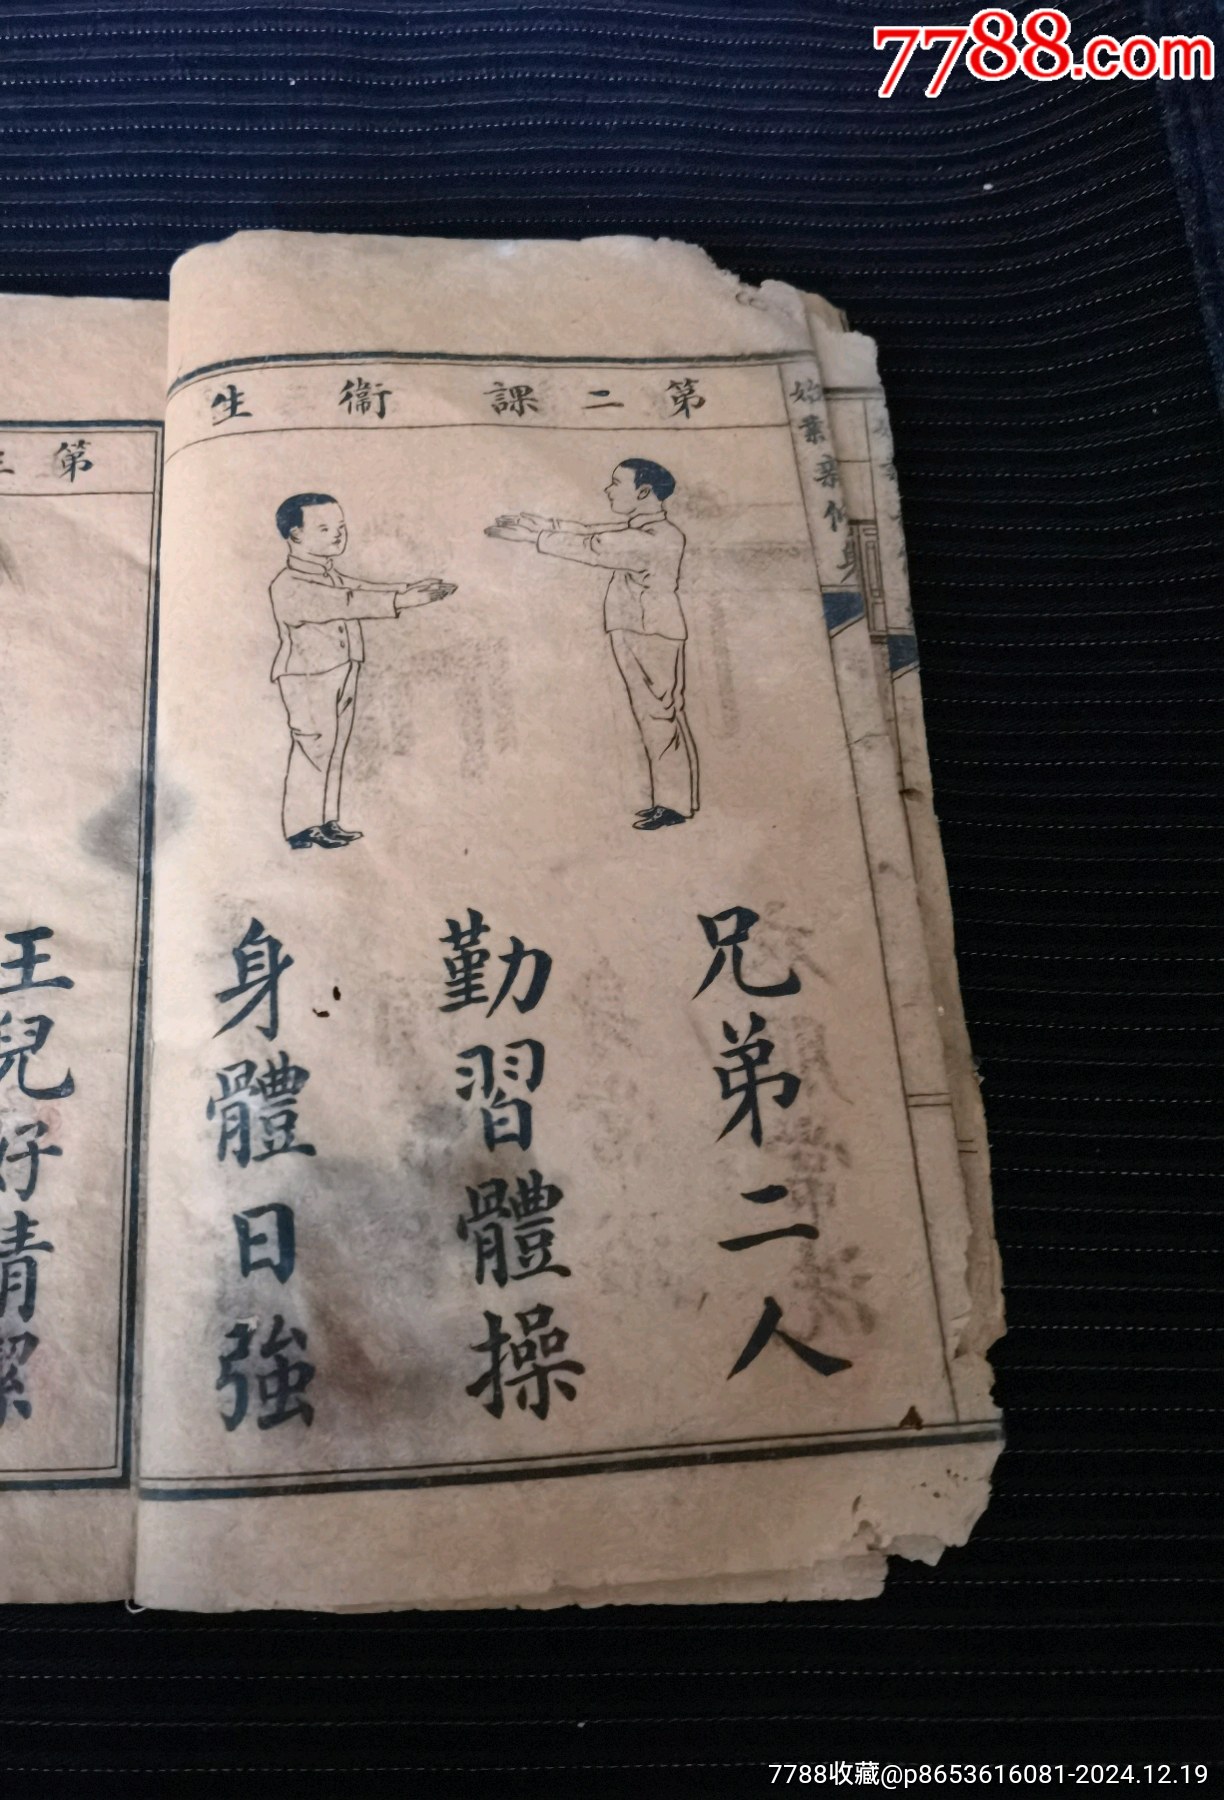 7788.com
第二課 衞生
兄弟二人
勤習體操
身體日強
第
王兒好清潔
7788收藏@p8653616081-2024.12.19